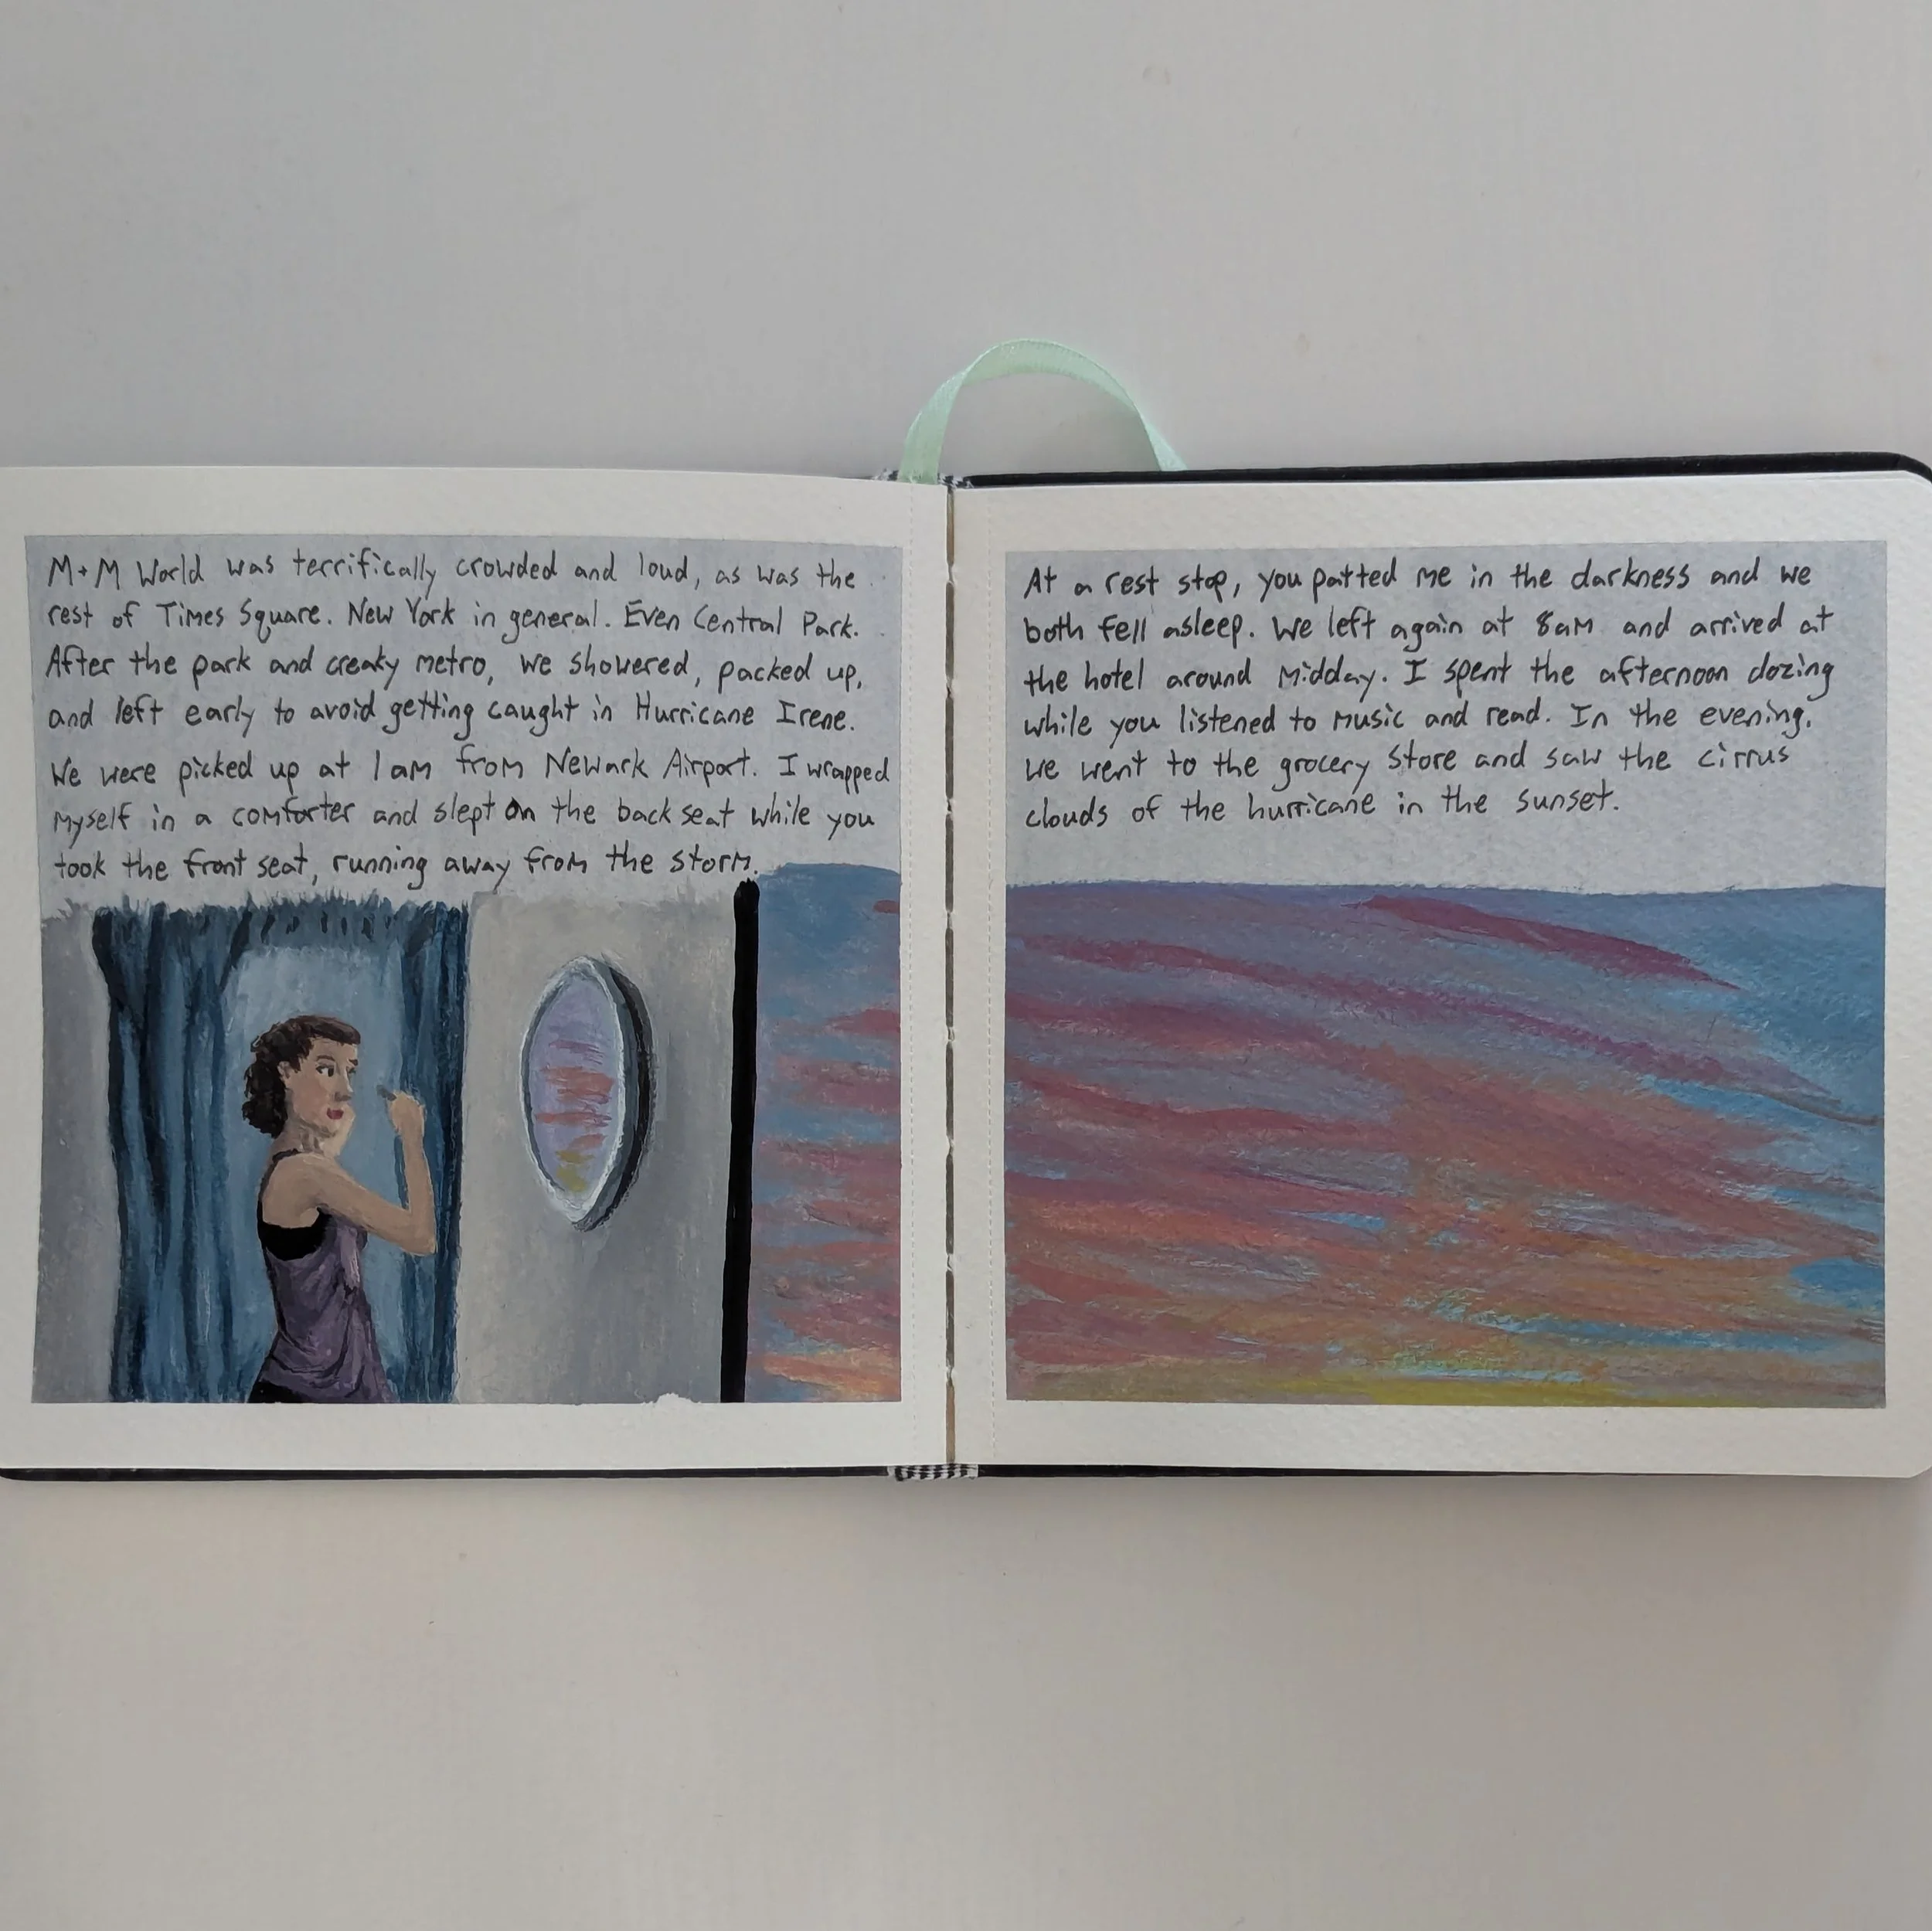 M+M World was terrifically crowded and loud, as was the
rest of Times Square. New York in general. Even Central Park.
After the park and creaky metro, we showered, packed up,
and left early to avoid getting caught in Hurricane Irene.
We were picked up at 1am from Newark Airport. I wrapped
myself in a comforter and slept on the back seat while you
took the front seat, running away from the storm.
At a rest stop, you patted me in the darkness and we
both fell asleep. We left again at 8am and arrived at
the hotel around midday. I spent the afternoon dozing
while you listened to music and read. In the evening,
we went to the grocery store and saw the cirrus
clouds of the hurricane in the sunset.